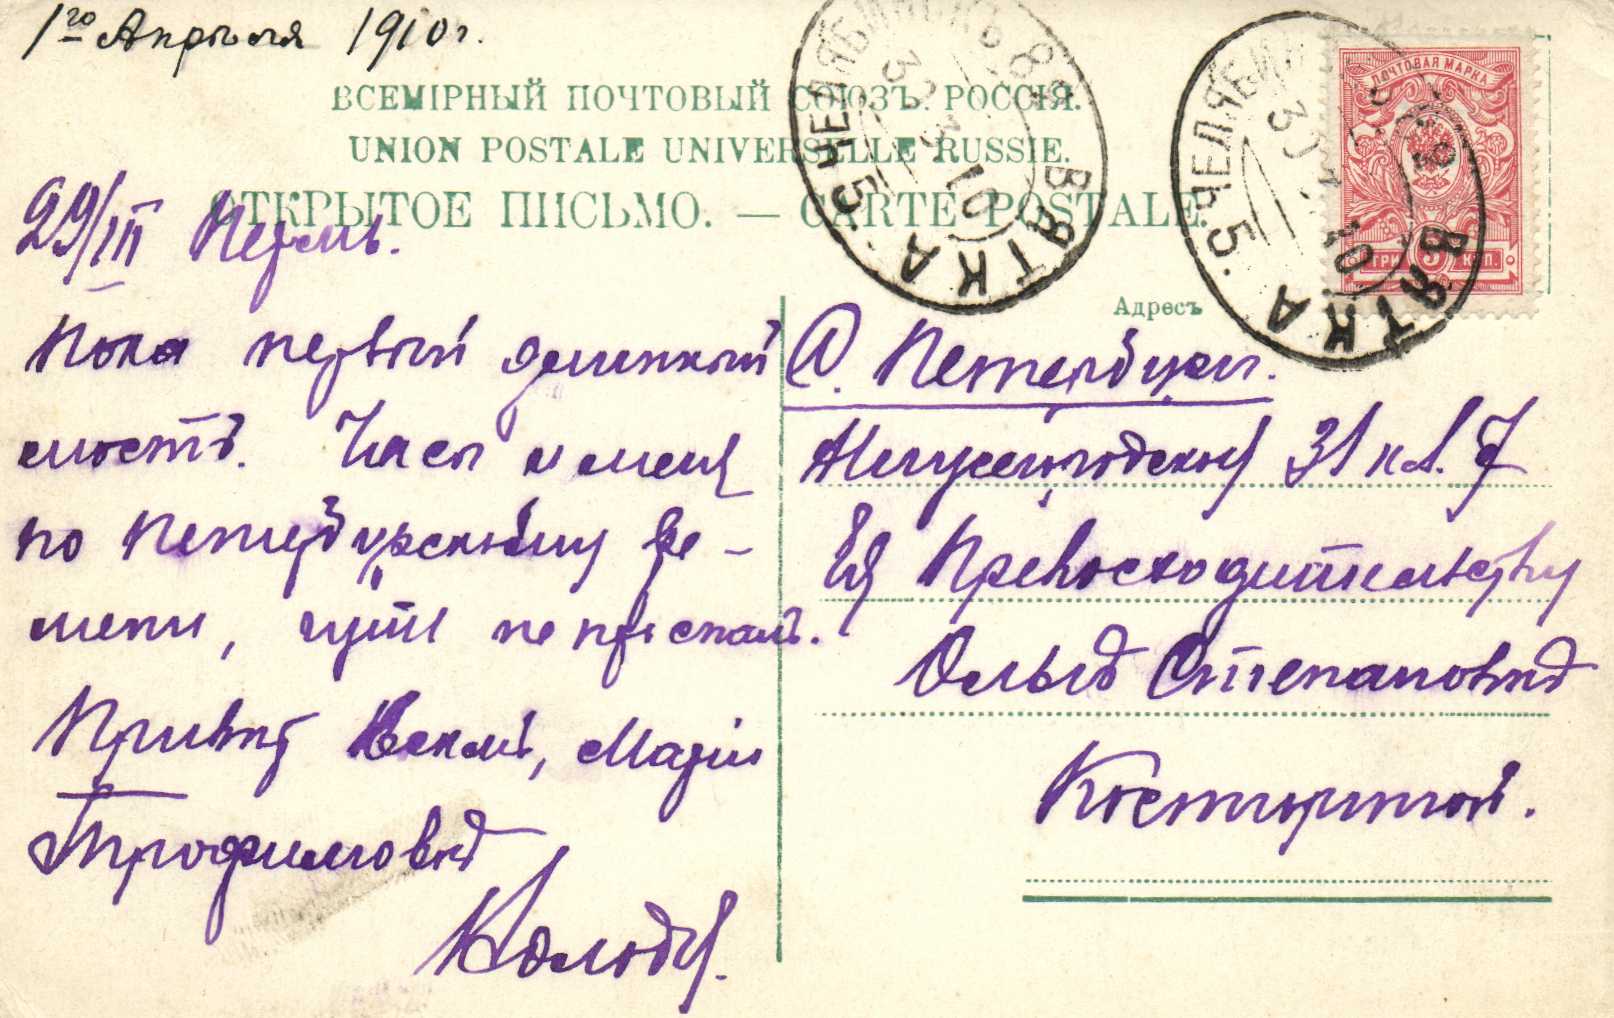 1го Апреля 1910г.
ВСЕМІРНЫЙ ПОЧТОВЫЙ СОЮЗЪ. РОССІЯ.
UNION POSTALE UNIVERSELLE RUSSIE.
ОТКРЫТОЕ ПИСЬМО. — CARTE POSTALE.
ЧЕЛЯБИНСКЪ ВЯТКА 5
30 3 10
ЧЕЛЯБИНСКЪ ВЯТКА 5
30 3 10
ПОЧТОВАЯ МАРКА
ТРИ 3 КОП.
29/III Пермь.
Пока первый длинный
мостъ. Часы имѣя
по Петербургскому вре-
мени, чуть не проспалъ.
Привѣтъ Всѣмъ, Маріи
Трофимовнѣ
Володя.
Адресъ
С. Петербургъ.
31 кв. 7
Ея Превосходительству
Ольгѣ Степановнѣ